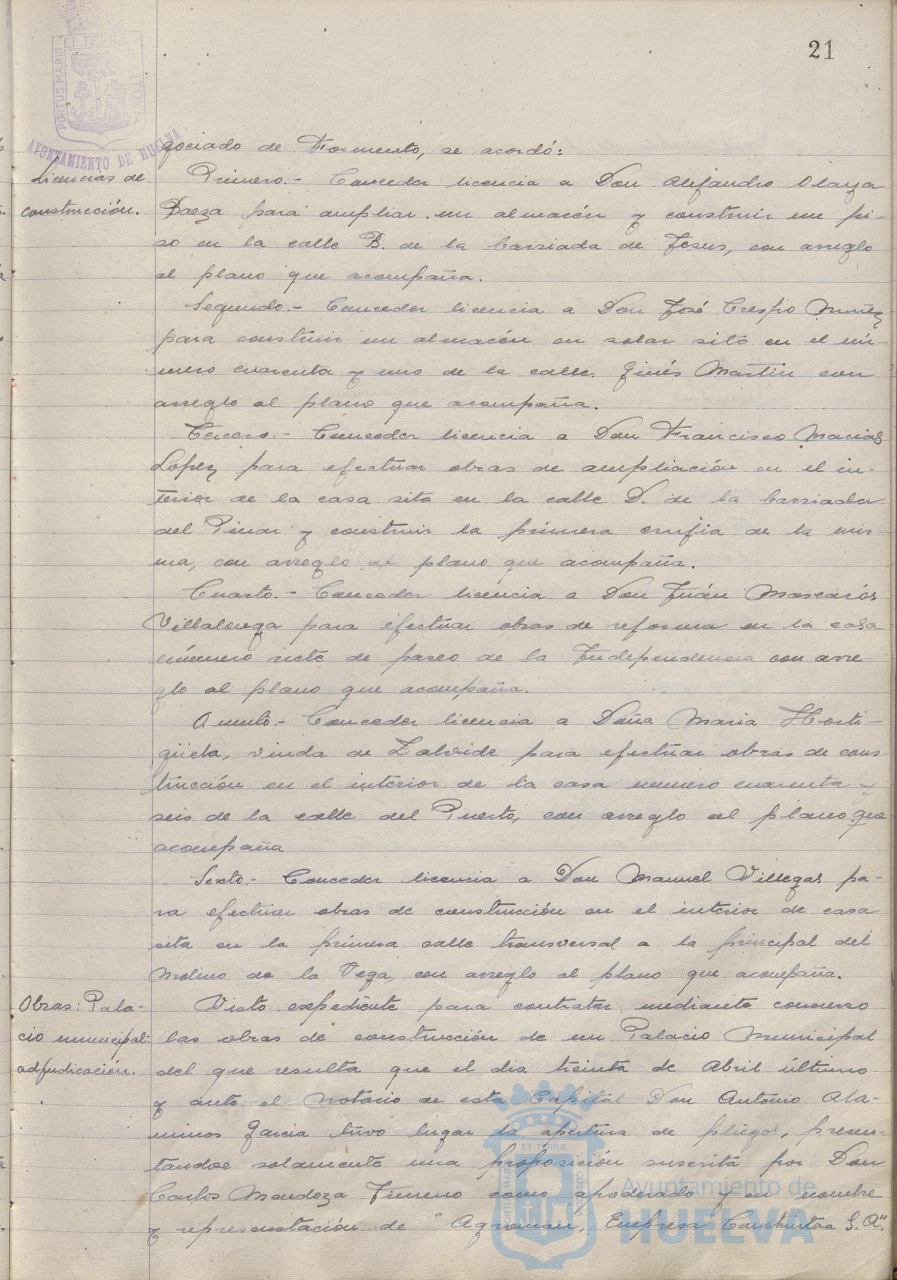 21
PORTUS MARIS ET TERRÆ CUSTODIA
AYUNTAMIENTO DE HUELVA
gociado de Fomento, se acordó:
Licencias de
construcción.
Primero.- Conceder licencia a Don Alejandro Olaya
Baeza para ampliar un almacén y construir un pi-
so en la calle B. de la barriada de Jesus, con arreglo
al plano que acompaña.
Segundo.- Conceder licencia a Don José Crespo Nuñez
para construir un almacén en solar sito en el nú-
mero cuarenta y uno de la calle Ginés Martin con
arreglo al plano que acompaña.
Tercero.- Conceder licencia a Don Francisco Macias
Lopez para efectuar obras de ampliación en el in-
terior de la casa sita en la calle D. de la barriada
del Pinar y construir la primera crujia de la mis-
ma, con arreglo al plano que acompaña.
Cuarto.- Conceder licencia a Don Juán Mascarós
Villalonga para efectuar obras de reforma en la casa
número siete de paseo de la Independencia con arre-
glo al plano que acompaña.
Quinto.- Conceder licencia a Doña Maria Horti-
güela, viuda de Zalvide para efectuar obras de cons-
trucción en el interior de la casa numero cuarenta y
seis de la calle del Puerto, con arreglo al plano que
acompaña
Sexto.- Conceder licencia a Don Manuel Villegas pa-
ra efectuar obras de construcción en el interior de casa
sita en la primera calle transversal a la principal del
Molino de la Vega, con arreglo al plano que acompaña.
Obras: Pala-
cio municipal:
adjudicación.
Visto expediente para contratar mediante concurso
las obras de construcción de un Palacio Municipal
del que resulta que el dia treinta de Abril último
y ante el Notario de esta Capital Don Antonio Ala-
minos Garcia tuvo lugar la apertura de pliegos, presen-
tandose solamente una proposición suscrita por Don
Carlos Mendoza Jimeno como apoderado y en nombre
y representación de "Agroman, Empresa Constructora S.A".
Ayuntamiento de
HUELVA